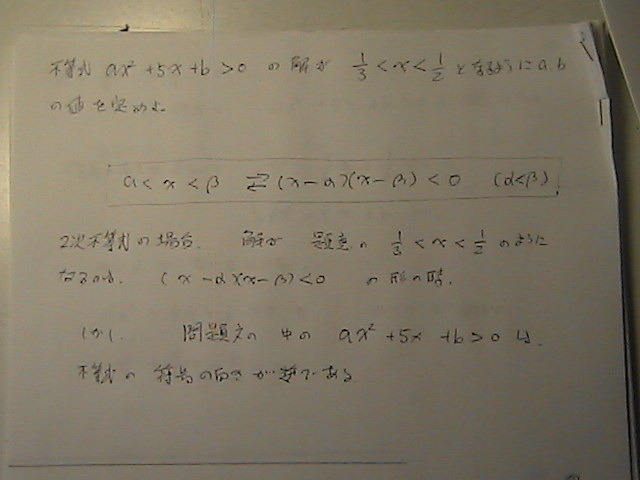 不等式 ax² + 5x + b > 0 の解が 1/3 < x < 1/2 となるように a, b
の値を定めよ。
α < x < β ⇄ (x - α)(x - β) < 0 (α < β)
2次不等式の場合、 解が 題意の 1/3 < x < 1/2 のように
なるのは、 (x - α)(x - β) < 0 の形の時、
しかし 問題文の 中の ax² + 5x + b > 0 は、
不等式の 符号の向きが 逆である